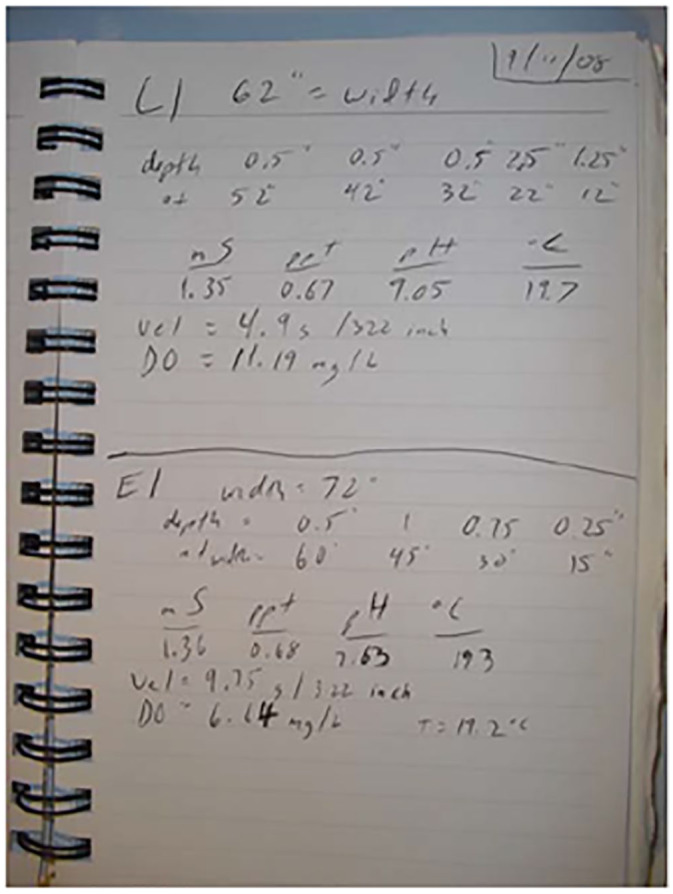 9/11/08
L1 62" = width
depth 0.5" 0.5" 0.5" 2.5" 1.25"
at 52" 42" 32" 22" 12"
mS ppt pH °C
1.35 0.67 9.05 19.7
Vel = 4.9 s /322 inch
DO = 11.19 mg/L
E1 width = 72"
depth = 0.5" 1 0.75 0.25"
at width = 60" 45" 30" 15"
mS ppt pH °C
1.36 0.68 7.63 19.3
Vel = 9.75 s/322 inch
DO = 6.64 mg/L T = 19.2 °C